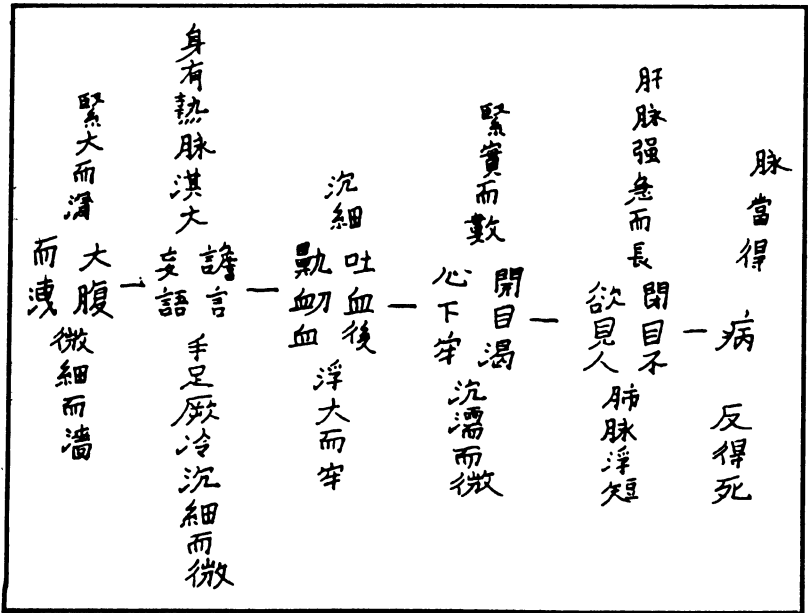 脉當得
病
反得死
肝脉强急而長
閉目不
欲見人
肺脉浮短
緊實而數
開目渴
心下牢
沉濡而微
沉細
吐血後
鼽衂血
浮大而牢
身有熱脉淇大
譫言
妄語
手足厥冷沉細而微
緊大而滑
大腹
而洩
微細而濇